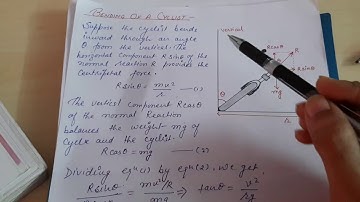 BENDING OF A CYCLIST:-
Suppose the cyclist bends
inward through an angle
θ from the vertical. The
horizontal component R sinθ of the
normal reaction R provides the
centripetal force.
R sinθ = mv²/r —(1)
The vertical component R cosθ
of the normal Reaction
balances the weight mg of
Cycle and the cyclist.
R cosθ = mg —(2)
Dividing eqⁿ(1) by eqⁿ(2), we get
R sinθ / = mv²/R / mg ⇒ tanθ = v²/rg
vertical
R cosθ
R
R sinθ
mg
θ